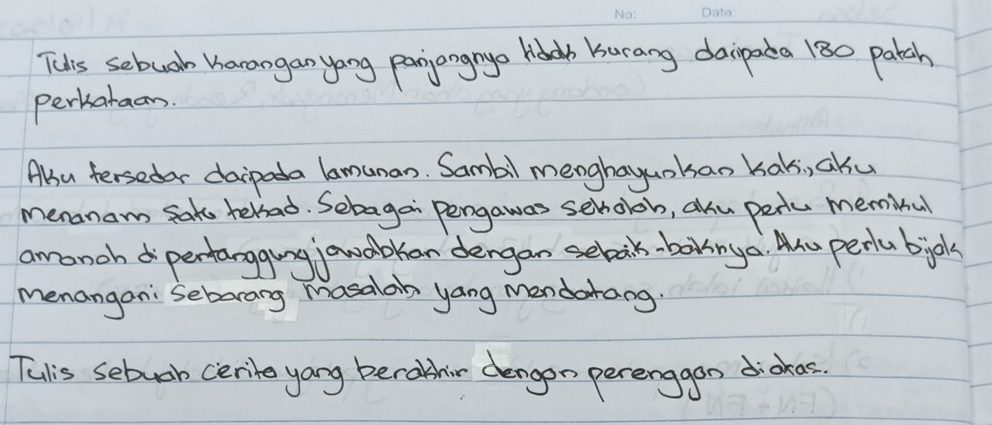 No: Date:
Tulis sebuah karangan yang panjangnya tidak kurang daripada 180 patah
perkataan.
Aku tersedar daripada lamunan. Sambil menghayunkan kaki, aku
menanam satu tekad. Sebagai pengawas sekolah, aku perlu memikul
amanah dipertanggungjawabkan dengan sebaik-baiknya. Aku perlu bijak
menangani sebarang masalah yang mendatang.
Tulis sebuah cerita yang berakhir dengan perenggan diatas.